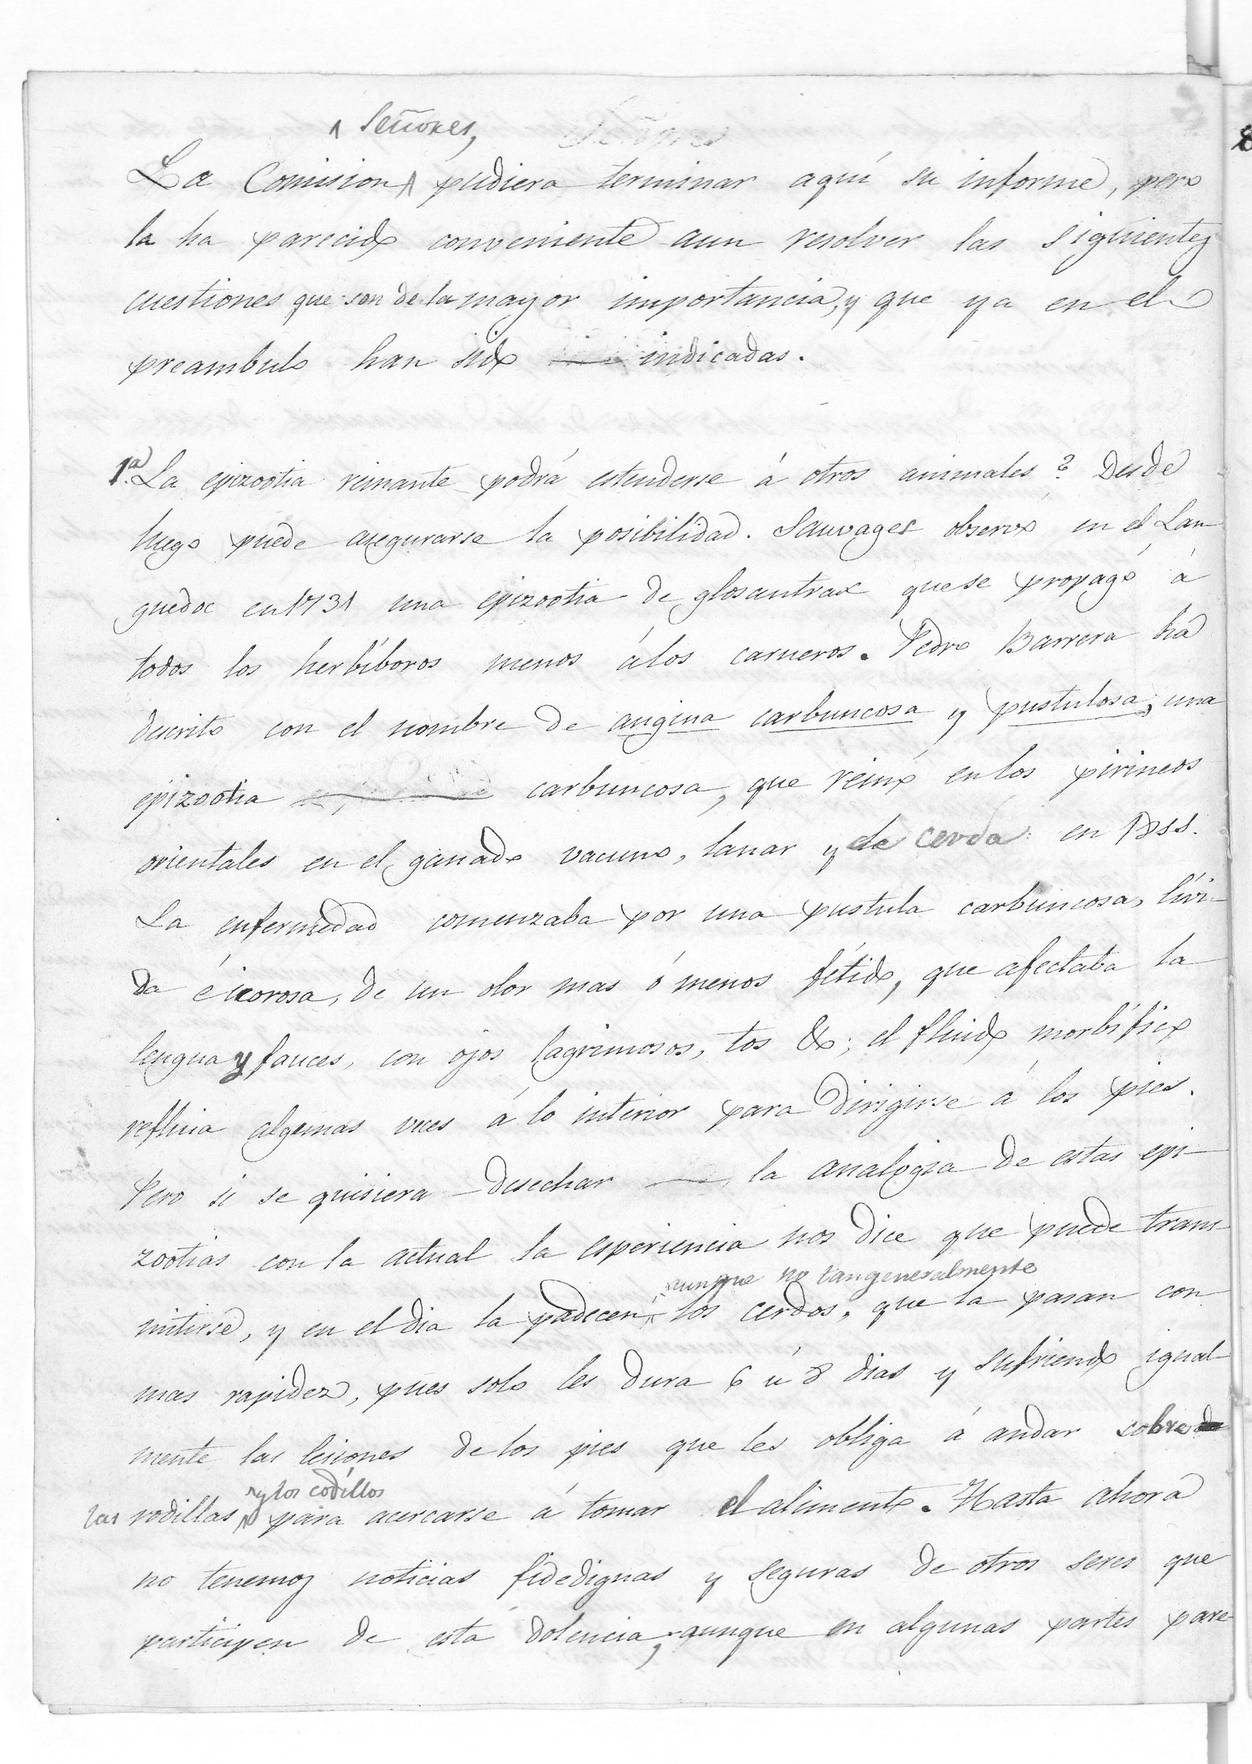 Señores,
La Comision pudiera terminar aquí su informe, pero
la ha parecido conveniente aun resolver las siguientes
cuestiones que son de la mayor importancia, y que ya en el
preambulo han sido indicadas.
1.a La epizootia reinante podrá estenderse á otros animales? Desde
luego puede asegurarse la posibilidad. Sauvages observó en el Lan-
guedoc en 1731 una epizootia de glosantrax que se propagó á
todos los herbíboros menos á los carneros. Pedro Barrera ha
descrito con el nombre de angina carbuncosa y pustulosa, una
epizootia carbuncosa, que reinó en los pirineos
orientales en el ganado vacuno, lanar y de cerda en
La enfermedad comenzaba por una pustula carbuncosa, lívi-
da é icorosa, de un olor mas ó menos fétido, que afectaba la
lengua y fauces, con ojos lagrimosos, tos &; el fluido morbífico
refluia algunas veces á lo interior para dirigirse á los pies.
Pero si se quisiera desechar la analogia de estas epi-
zootias con la actual la esperiencia nos dice que puede trans-
aunque no tan generalmente
mitirse, y en el dia la padecen los cerdos, que la pasan con
mas rapidez, pues solo les dura 6 ú 8 dias y sufriendo igual-
mente las lesiones de los pies que les obliga á andar sobre
y los codillos
las rodillas para acercarse á tomar el alimento. Hasta ahora
no tenemos noticias fidedignas y seguras de otros seres que
participen de esta dolencia, aunque en algunas partes pare